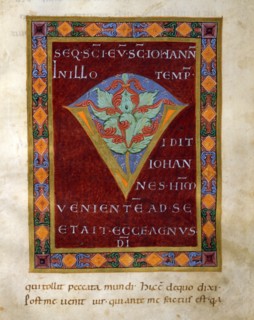 SEQ·SCI EV·SC·IOHANN
IN ILLO TEMP·
V IDIT
IOHAN
NES·HIM
VENIENTE AD SE
ETAIT·ECCE AGNVS
DI
qui tollit peccata mundi· hic e de quo dixi·
Post me venit vir· qui ante me factus est· q·